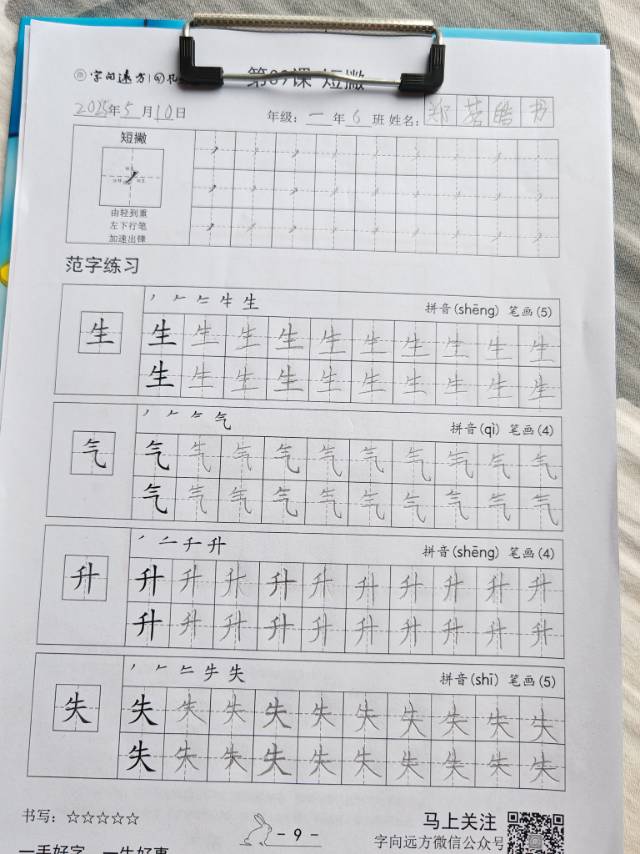 字向远方
短撇
2025年5月10日
年级：一年6班 姓名：
短撇
由轻到重
左下行笔
加速出锋
范字练习
拼音(shēng) 笔画(5)
生 生 生 生 生 生 生 生 生 生 生
生 生 生 生 生 生 生 生 生 生
拼音(qì) 笔画(4)
气 气 气 气 气 气 气 气 气 气 气
气 气 气 气 气 气 气 气 气 气
拼音(shēng) 笔画(4)
升 升 升 升 升 升 升 升 升 升 升
升 升 升 升 升 升 升 升 升 升
拼音(shī) 笔画(5)
失 失 失 失 失 失 失 失 失 失 失
失 失 失 失 失 失 失 失 失 失
书写：☆☆☆☆☆
- 9 -
马上关注
字向远方微信公众号